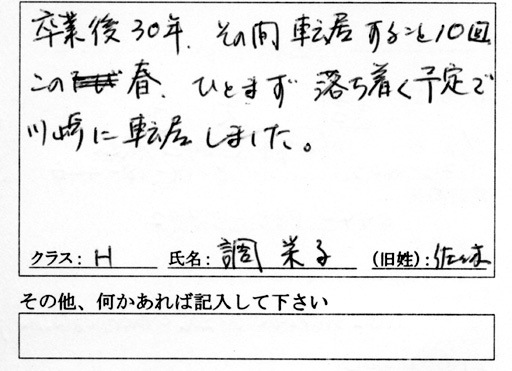 卒業後30年、その間転居すること10回
この春、ひとまず落ち着く予定で
川崎に転居しました。
クラス: H 氏名: 調 栄子 (旧姓): 佐々木
その他、何かあれば記入して下さい